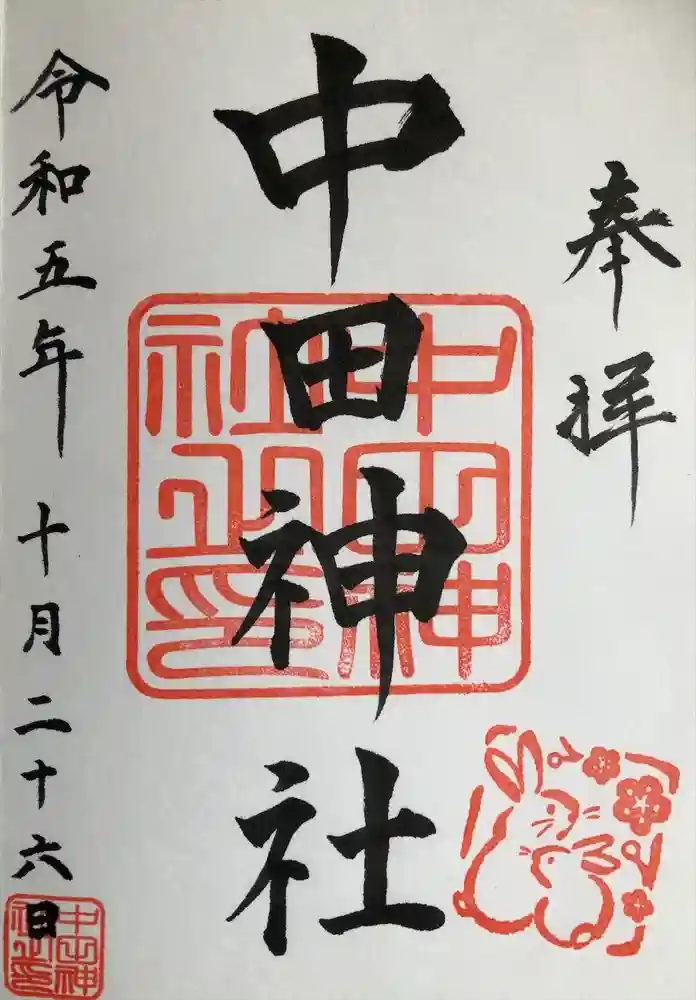 奉拝
中田神社
中田神社之印
令和五年 十月二十六日